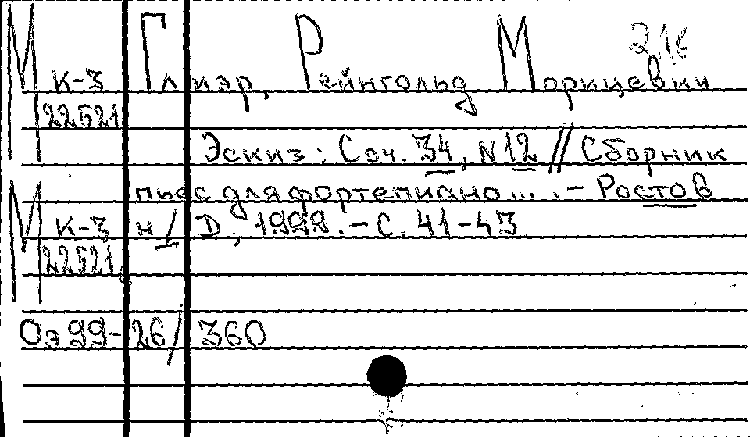 М К-3 Глиэр, Рейнгольд Морицевич
22521
Эскиз: Соч. 34, N12 // Сборник
пьес для фортепиано... . - Ростов
М К-3 н/Д, 1998. - С. 41-43
22521
Оэ99-26/360